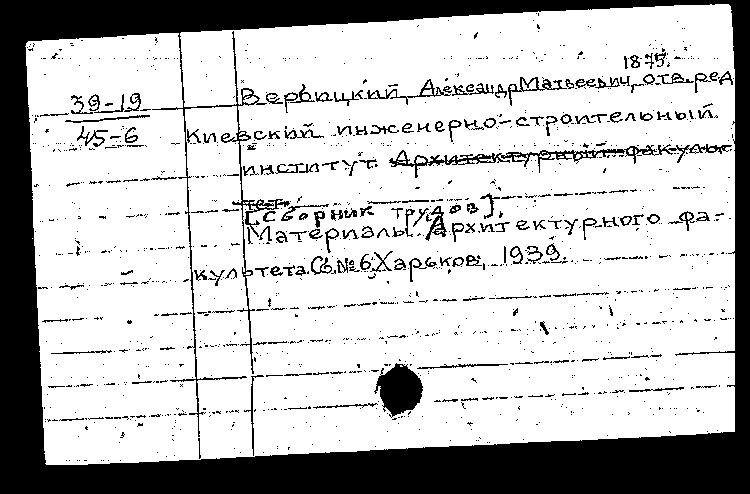 1875.
39-19 Вербицкий, Александр Матвеевич, отв. ред
45-6 Киевский инженерно-строительный
институт. Архитектурный факуль
тет.
[Сборник трудов].
Материалы Архитектурного фа-
культета. Сб. № 6. Харьков, 1939.